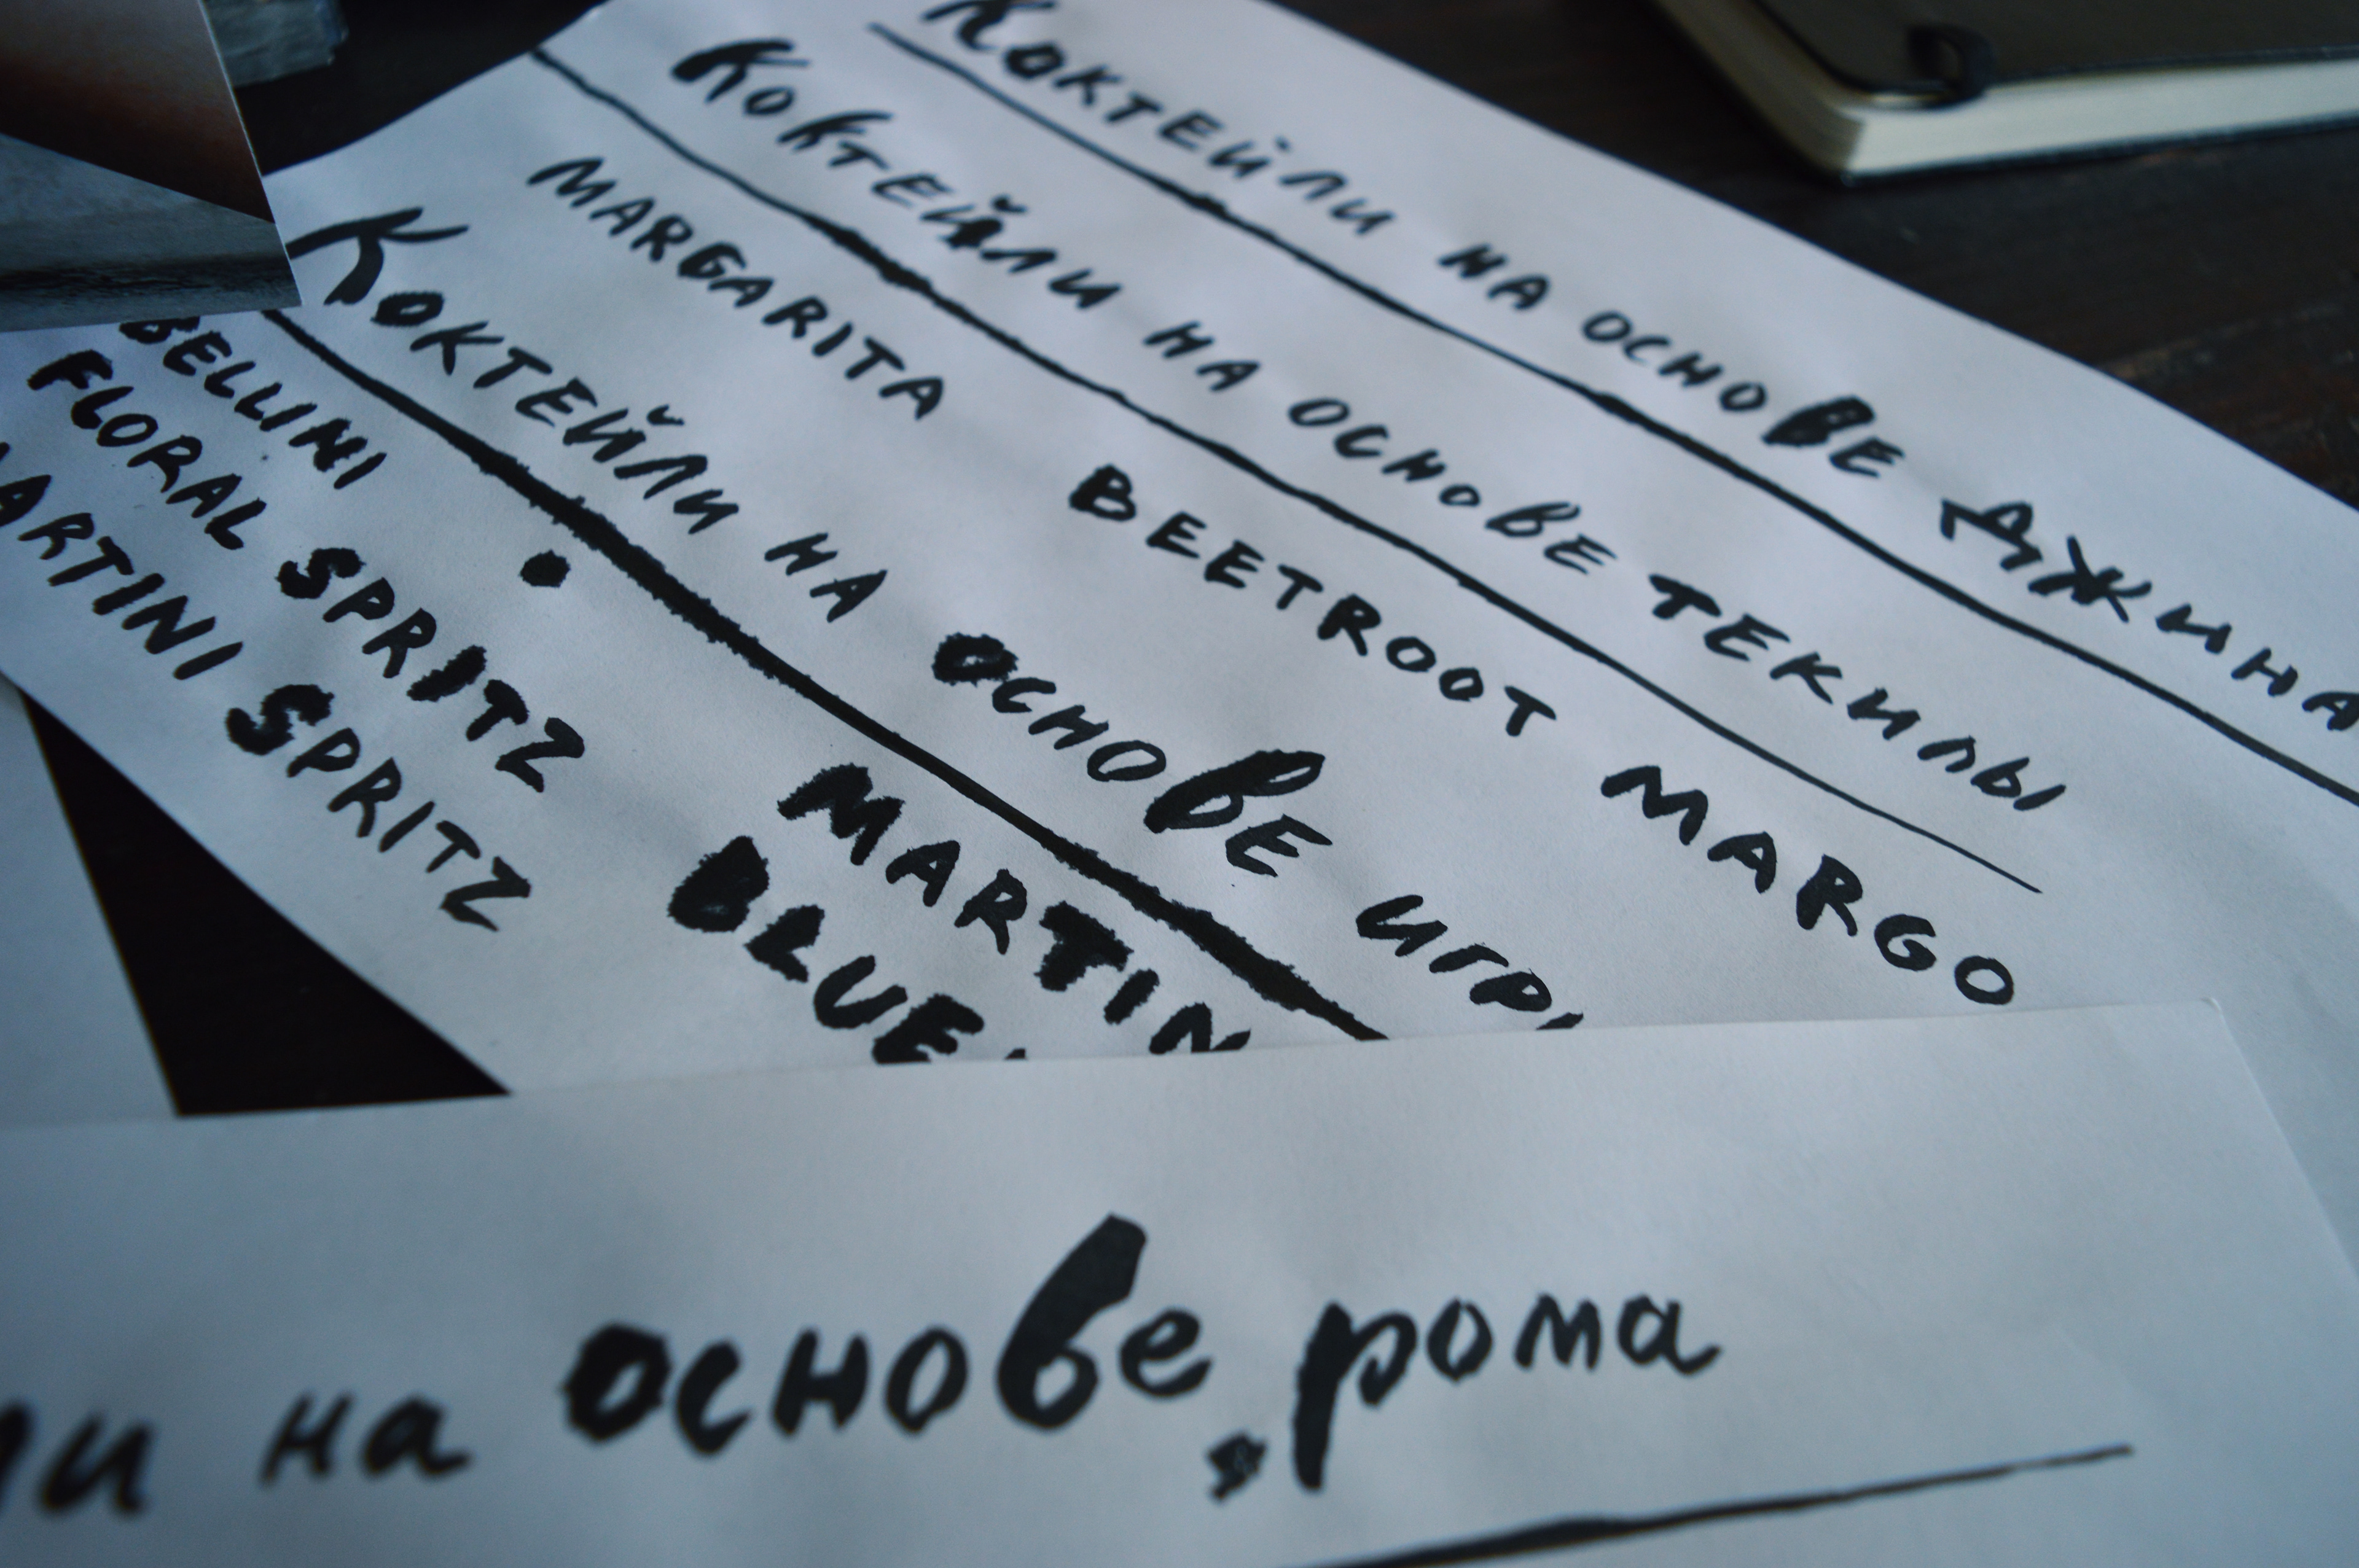 Коктейли на основе джина
Коктейли на основе текилы
MARGARITA BEETROOT MARGO
Коктейли на основе
BELLINI
FLORAL SPRITZ
SPRITZ
на основе рома